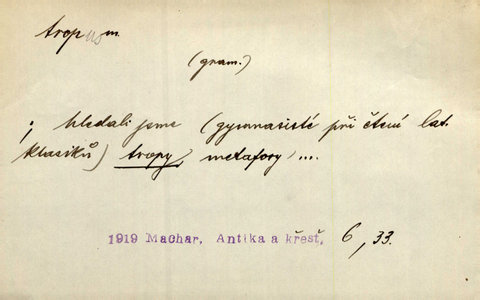 tropus m.
(gram.)
; hledali jsme (gymnasisté při čtení lat.
klasiků) tropy, metafory, ...
1919 Machar, Antika a křesť, 6, 33.